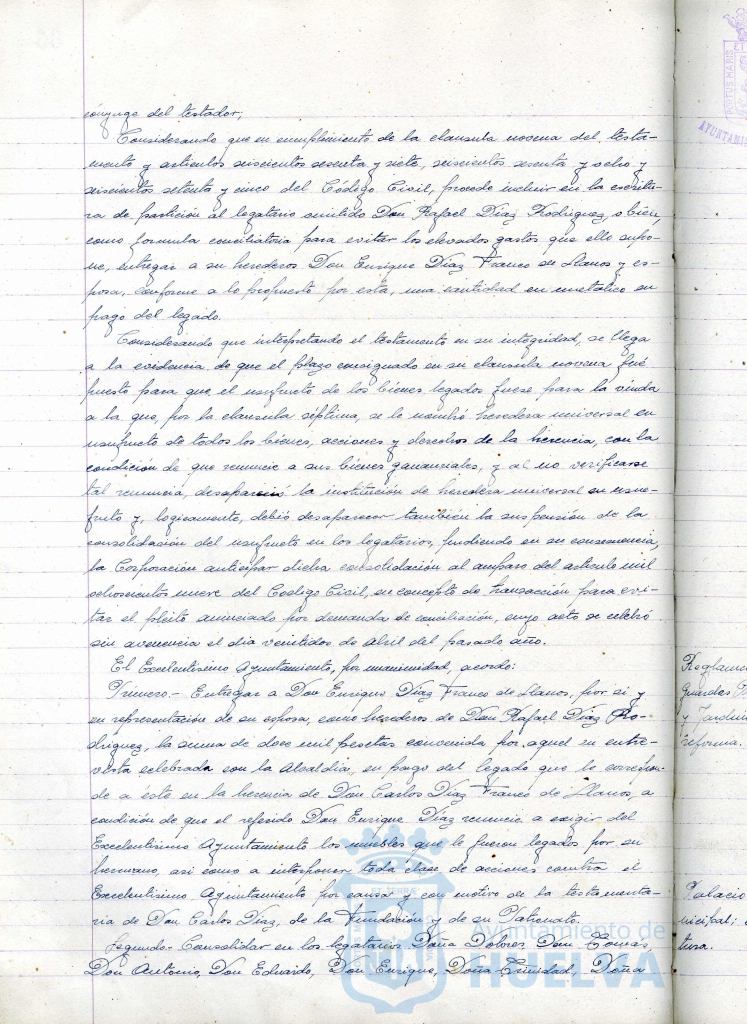 cónyuge del testador;
Considerando que en cumplimiento de la clausula novena del testa-
mento y articulos seiscientos sesenta y siete, seiscientos sesenta y ocho y
seiscientos setenta y cinco del Código Civil, procede incluir en la escritu-
ra de partición al legatario omitido Don Rafael Díaz Rodriguez, o bien,
como formula conciliatoria para evitar los elevados gastos que ello supo-
ne, entregar a su herederos Don Enrique Díaz Franco de Llanos y es-
posa, conforme a lo propuesto por esta, una cantidad en metalico en
pago del legado.
Considerando que interpretando el testamento en su integridad, se llega
a la evidencia de que el plazo consignado en su clausula novena fué
puesto para que el usufructo de los bienes legados fuese para la viuda
a la que, por la clausula séptima, se le nombró heredera universal en
usufructo de todos los bienes, acciones y derechos de la herencia, con la
condición de que renuncie a sus bienes gananciales, y al no verificarse
tal renuncia, desapareció la institución de heredera universal en usu-
fruto y, logicamente, debió desaparecer también la suspensión de la
consolidación del usufructo en los legatarios, pudiendo en su consecuencia,
la Corporación anticipar dicha consolidación al amparo del articulo mil
ochocientos nueve del Codigo Civil, en concepto de transacción para evi-
tar el pleito anunciado por demanda de conciliación, cuyo acto se celebró
sin avenencia el dia veintidos de Abril del pasado año.
El Excelentisimo Ayuntamiento, por unanimidad, acordó:
Primero.- Entregar a Don Enrique Díaz Franco de Llanos, por si y
en representación de su esposa, como herederos de Don Rafael Díaz Ro-
driguez, la suma de doce mil pesetas convenida por aquel en entre-
vista celebrada con la Alcaldia, en pago del legado que le correspon-
de a éste en la herencia de Don Carlos Díaz Franco de Llanos, a
condición de que el referido Don Enrique Díaz renuncie a exigir del
Excelentisimo Ayuntamiento los muebles que le fueron legados por su
hermano, asi como a interponer toda clase de acciones contra el
Excelentisimo Ayuntamiento por causa y con motivo de la testamenta-
ria de Don Carlos Díaz, de la Fundación y de su Patronato.
Segundo.- Consolidar en los legatarios Doña Dolores, Don Tomas,
Don Antonio, Don Eduardo, Don Enrique, Doña Trinidad, Doña
Reglamen
guardas P
y Jardin
reforma.
Palacio
nicipal;
tura.
PORTUS MARIS ET
AYUNTAMIE
Ayuntamiento de
HUELVA